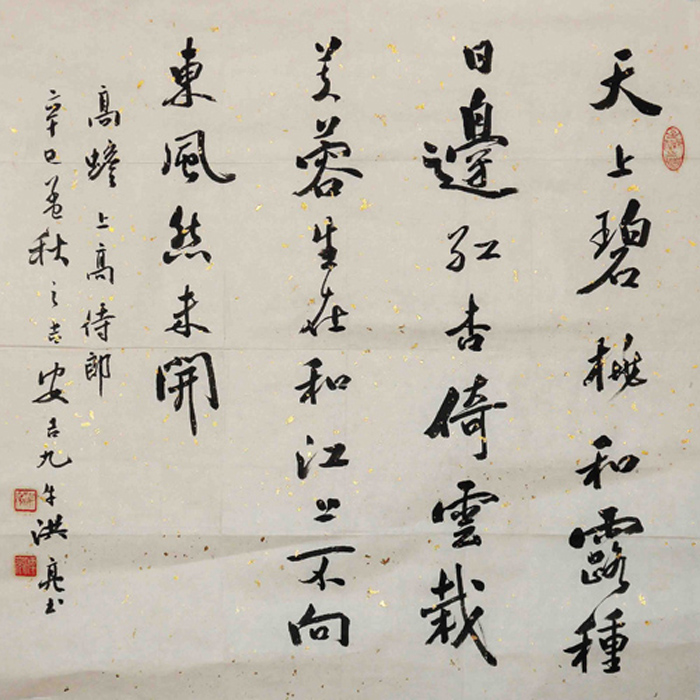 天上碧桃和露種
日邊紅杏倚雲栽
芙蓉生在和江上不向
東風然未開
高蟾上高侍郎
辛巳孟秋之吉安吉九牛洪亮书